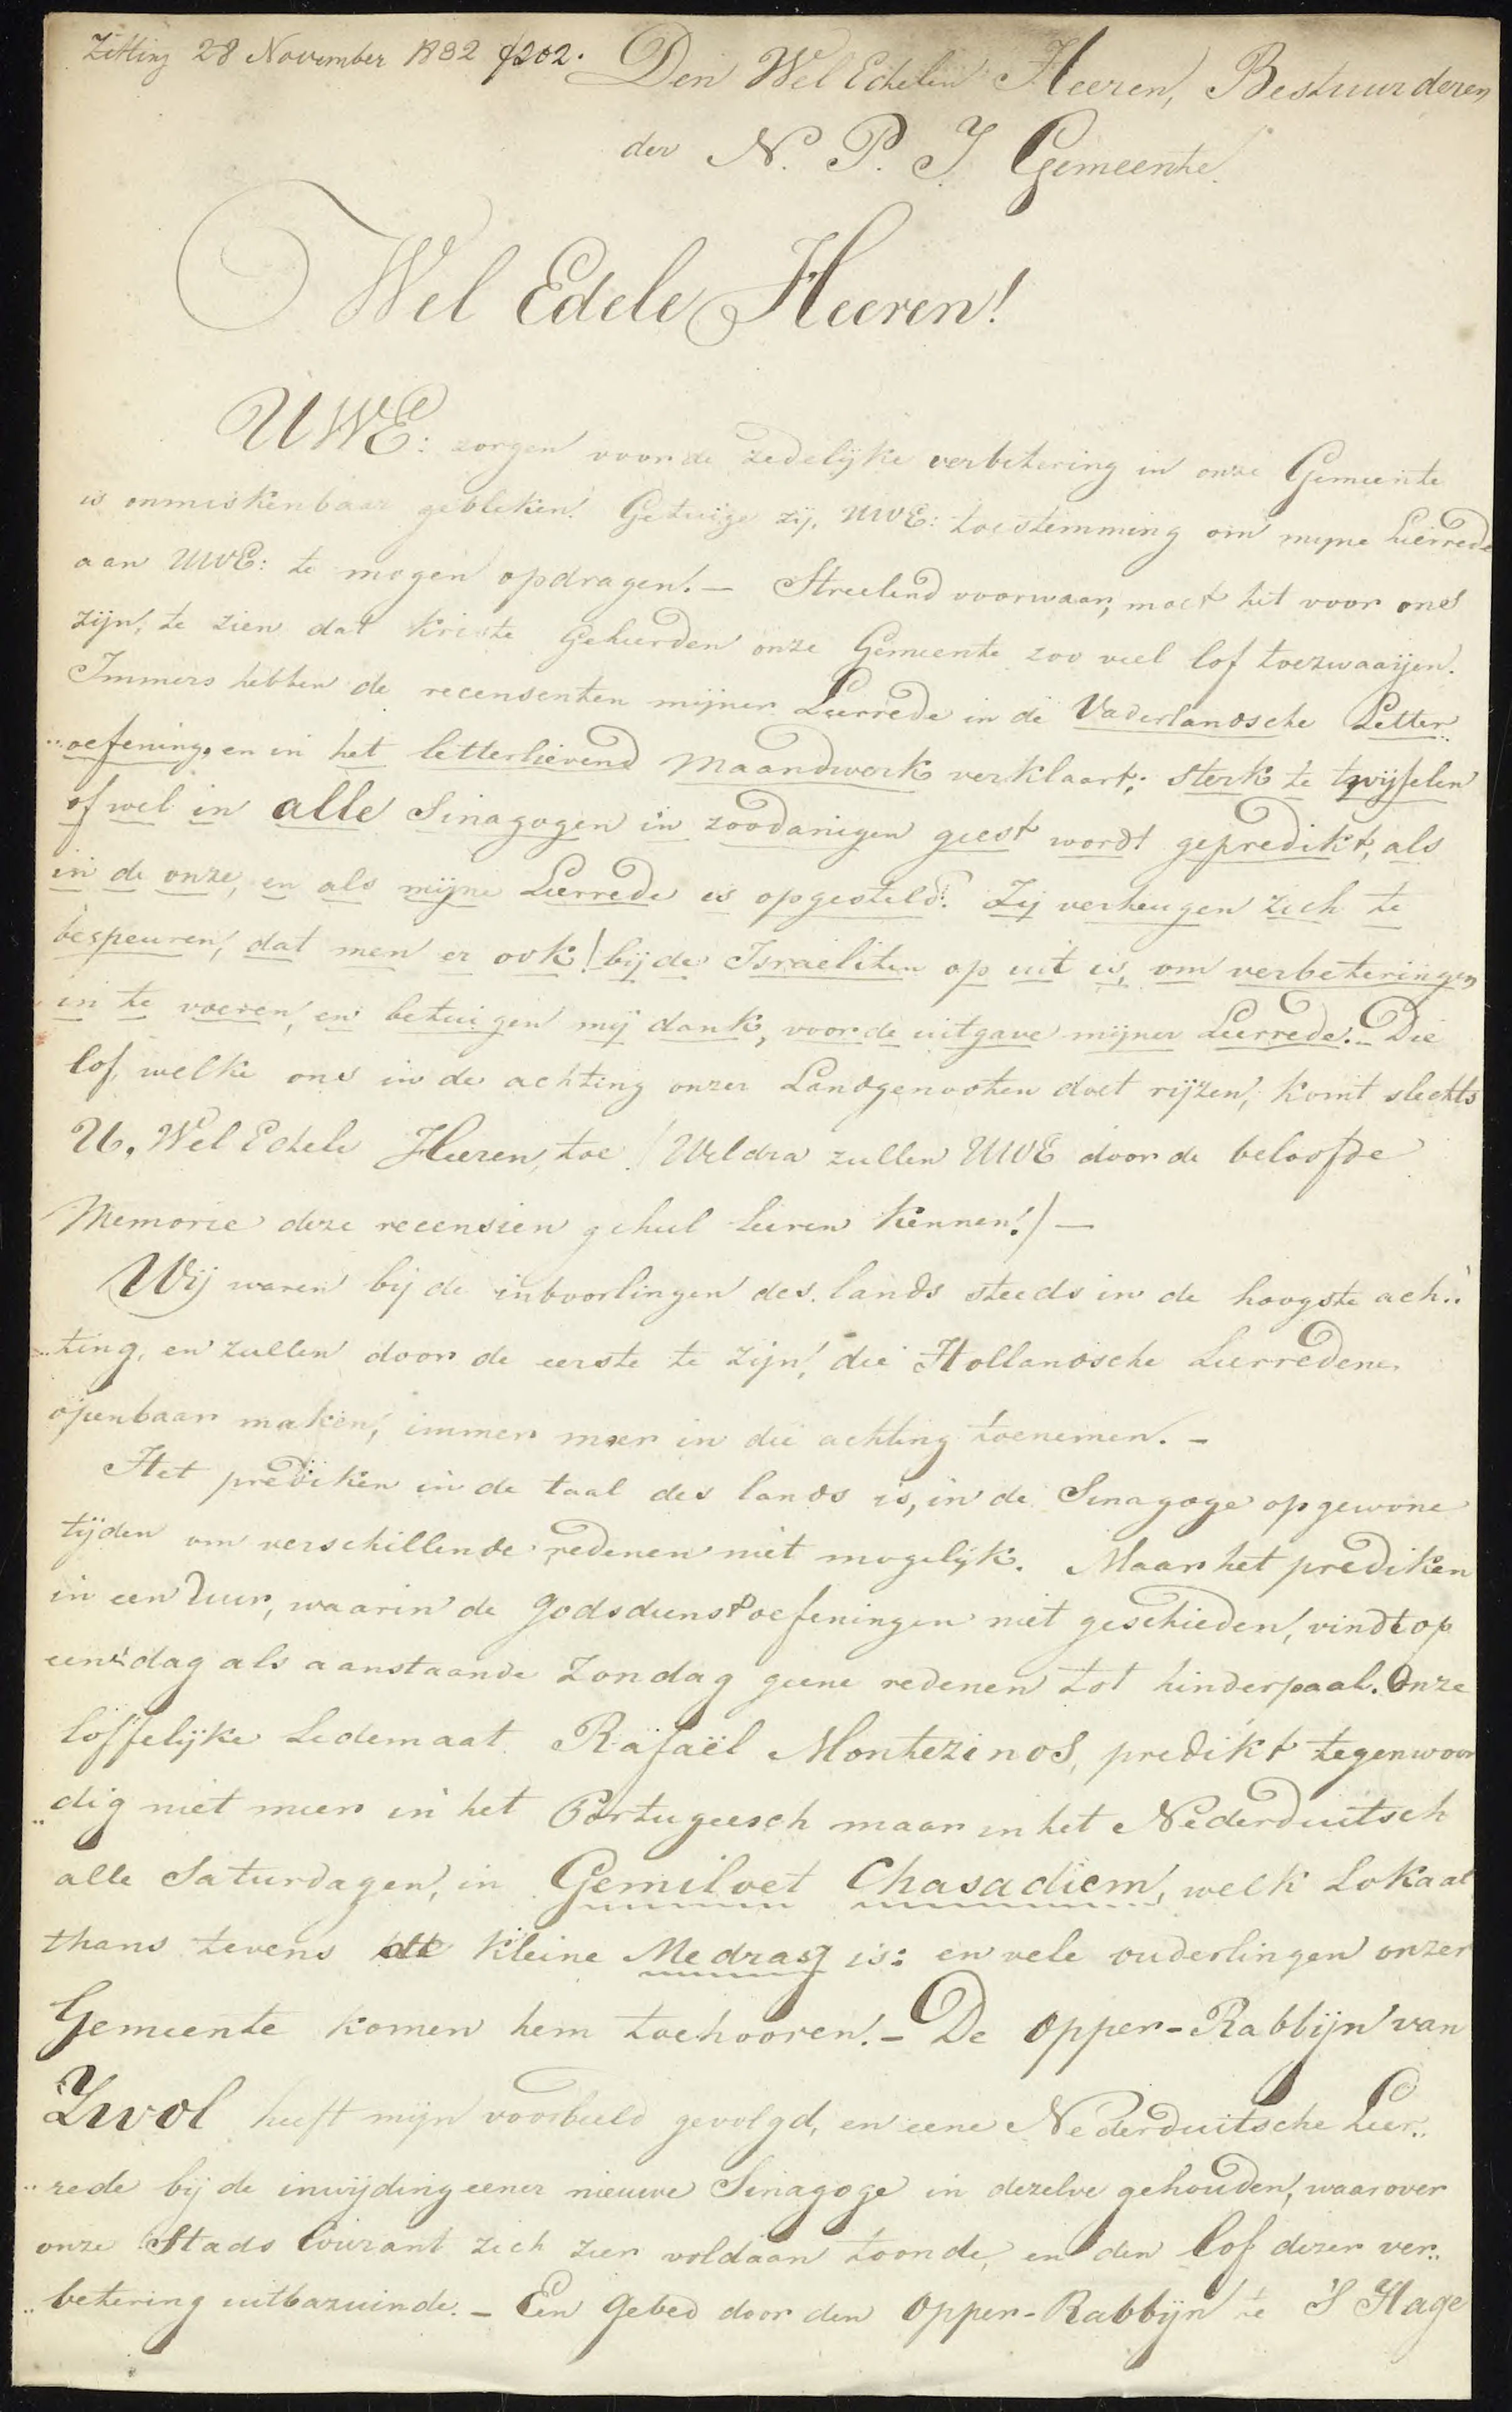 Zitting 28 November 1832 f 202.
Den Wel Edelen Heeren, Bestuurderen
der N. P. I Gemeente.
Wel Edele Heeren!
UWE: zorgen voor de zedelijke verbetering in onze Gemeente
is onmiskenbaar gebleken! Getuige zij, UWE: toestemming om mijne Leerrede
aan UWE: te mogen opdragen! — Streelend voorwaar, moet het voor ons
zijn, te zien dat Kriste Geleerden onze Gemeente zoo veel lof toezwaaijen.
Immers hebben de recensenten mijner Leerrede in de Vaderlandsche Letter„
„oefening, en in het letterlievend Maandwerk verklaart; sterk te twijfelen
of wel in alle Sinagogen in zoodanigen geest wordt gepredikt, als
in de onze, en als mijne Leerrede is opgesteld. Zij verheugen zich te
bespeuren, dat men er ook! bij de Israeliten op uit is, om verbeteringen
in te voeren, en betuigen mij dank, voor de uitgave mijner Leerrede. — Die
lof, welke ons in de achting onzer Landgenooten doet rijzen, komt slechts
U, Wel Edele Heeren, toe! (Weldra zullen UWE door de beloofde
Memorie deze recensien geheel leeren kennen!) —
Wij waren bij de inboorlingen des lands steeds in de hoogste ach„
„ting, en zullen door de eerste te zijn, die Hollandsche Leerredenen
openbaar maken, immer meer in die achting toenemen. —
Het prediken in de taal des lands is, in de Sinagoge op gewone
tijden om verschillende redenen niet mogelijk. Maar het prediken
in een uur, waarin de Godsdienstoefeningen niet geschieden, vindt op
een dag als aanstaande Zondag geene redenen tot hinderpaal. Onze
loffelijke Ledemaat Rafaël Montezinos, predikt tegenwoor
„dig niet meer in het Portugeesch maar in het Nederduitsch
alle Saturdagen, in Gemiloet Chasadiem, welk Lokaal
thans tevens de kleine Medrasj is: en vele ouderlingen onzer
Gemeente komen hem toehooren! — De Opper-Rabbijn van
Zwol heeft mijn voorbeeld gevolgd, en eene Nederduitsche Leer„
„rede bij de inwijding eener nieuwe Sinagoge in dezelve gehouden, waarover
onze Stads Courant zich zeer voldaan toonde, en den lof dezer ver„
„betering uitbazuinde. — Een Gebed door den Opper-Rabbijn te 'S Hage